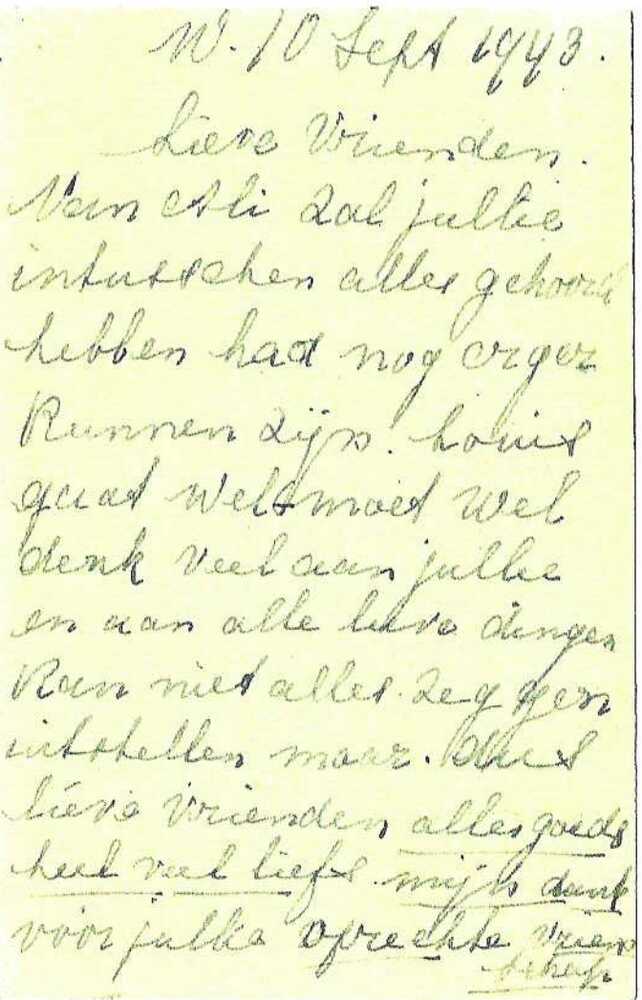 W. 10 Sept 1943.
Lieve Vrienden.
Van Ali zal jullie
intusschen alles gehoord
hebben had nog erger
Kunnen zijn. Louis
gaat wel moet wel
denk veel aan jullie
en aan alle lieve dingen
Kan niet alles zeggen
maar. dus
lieve Vrienden alles goeds
heel veel liefs mijn dank
voor jullie oprechte Vriend
schap